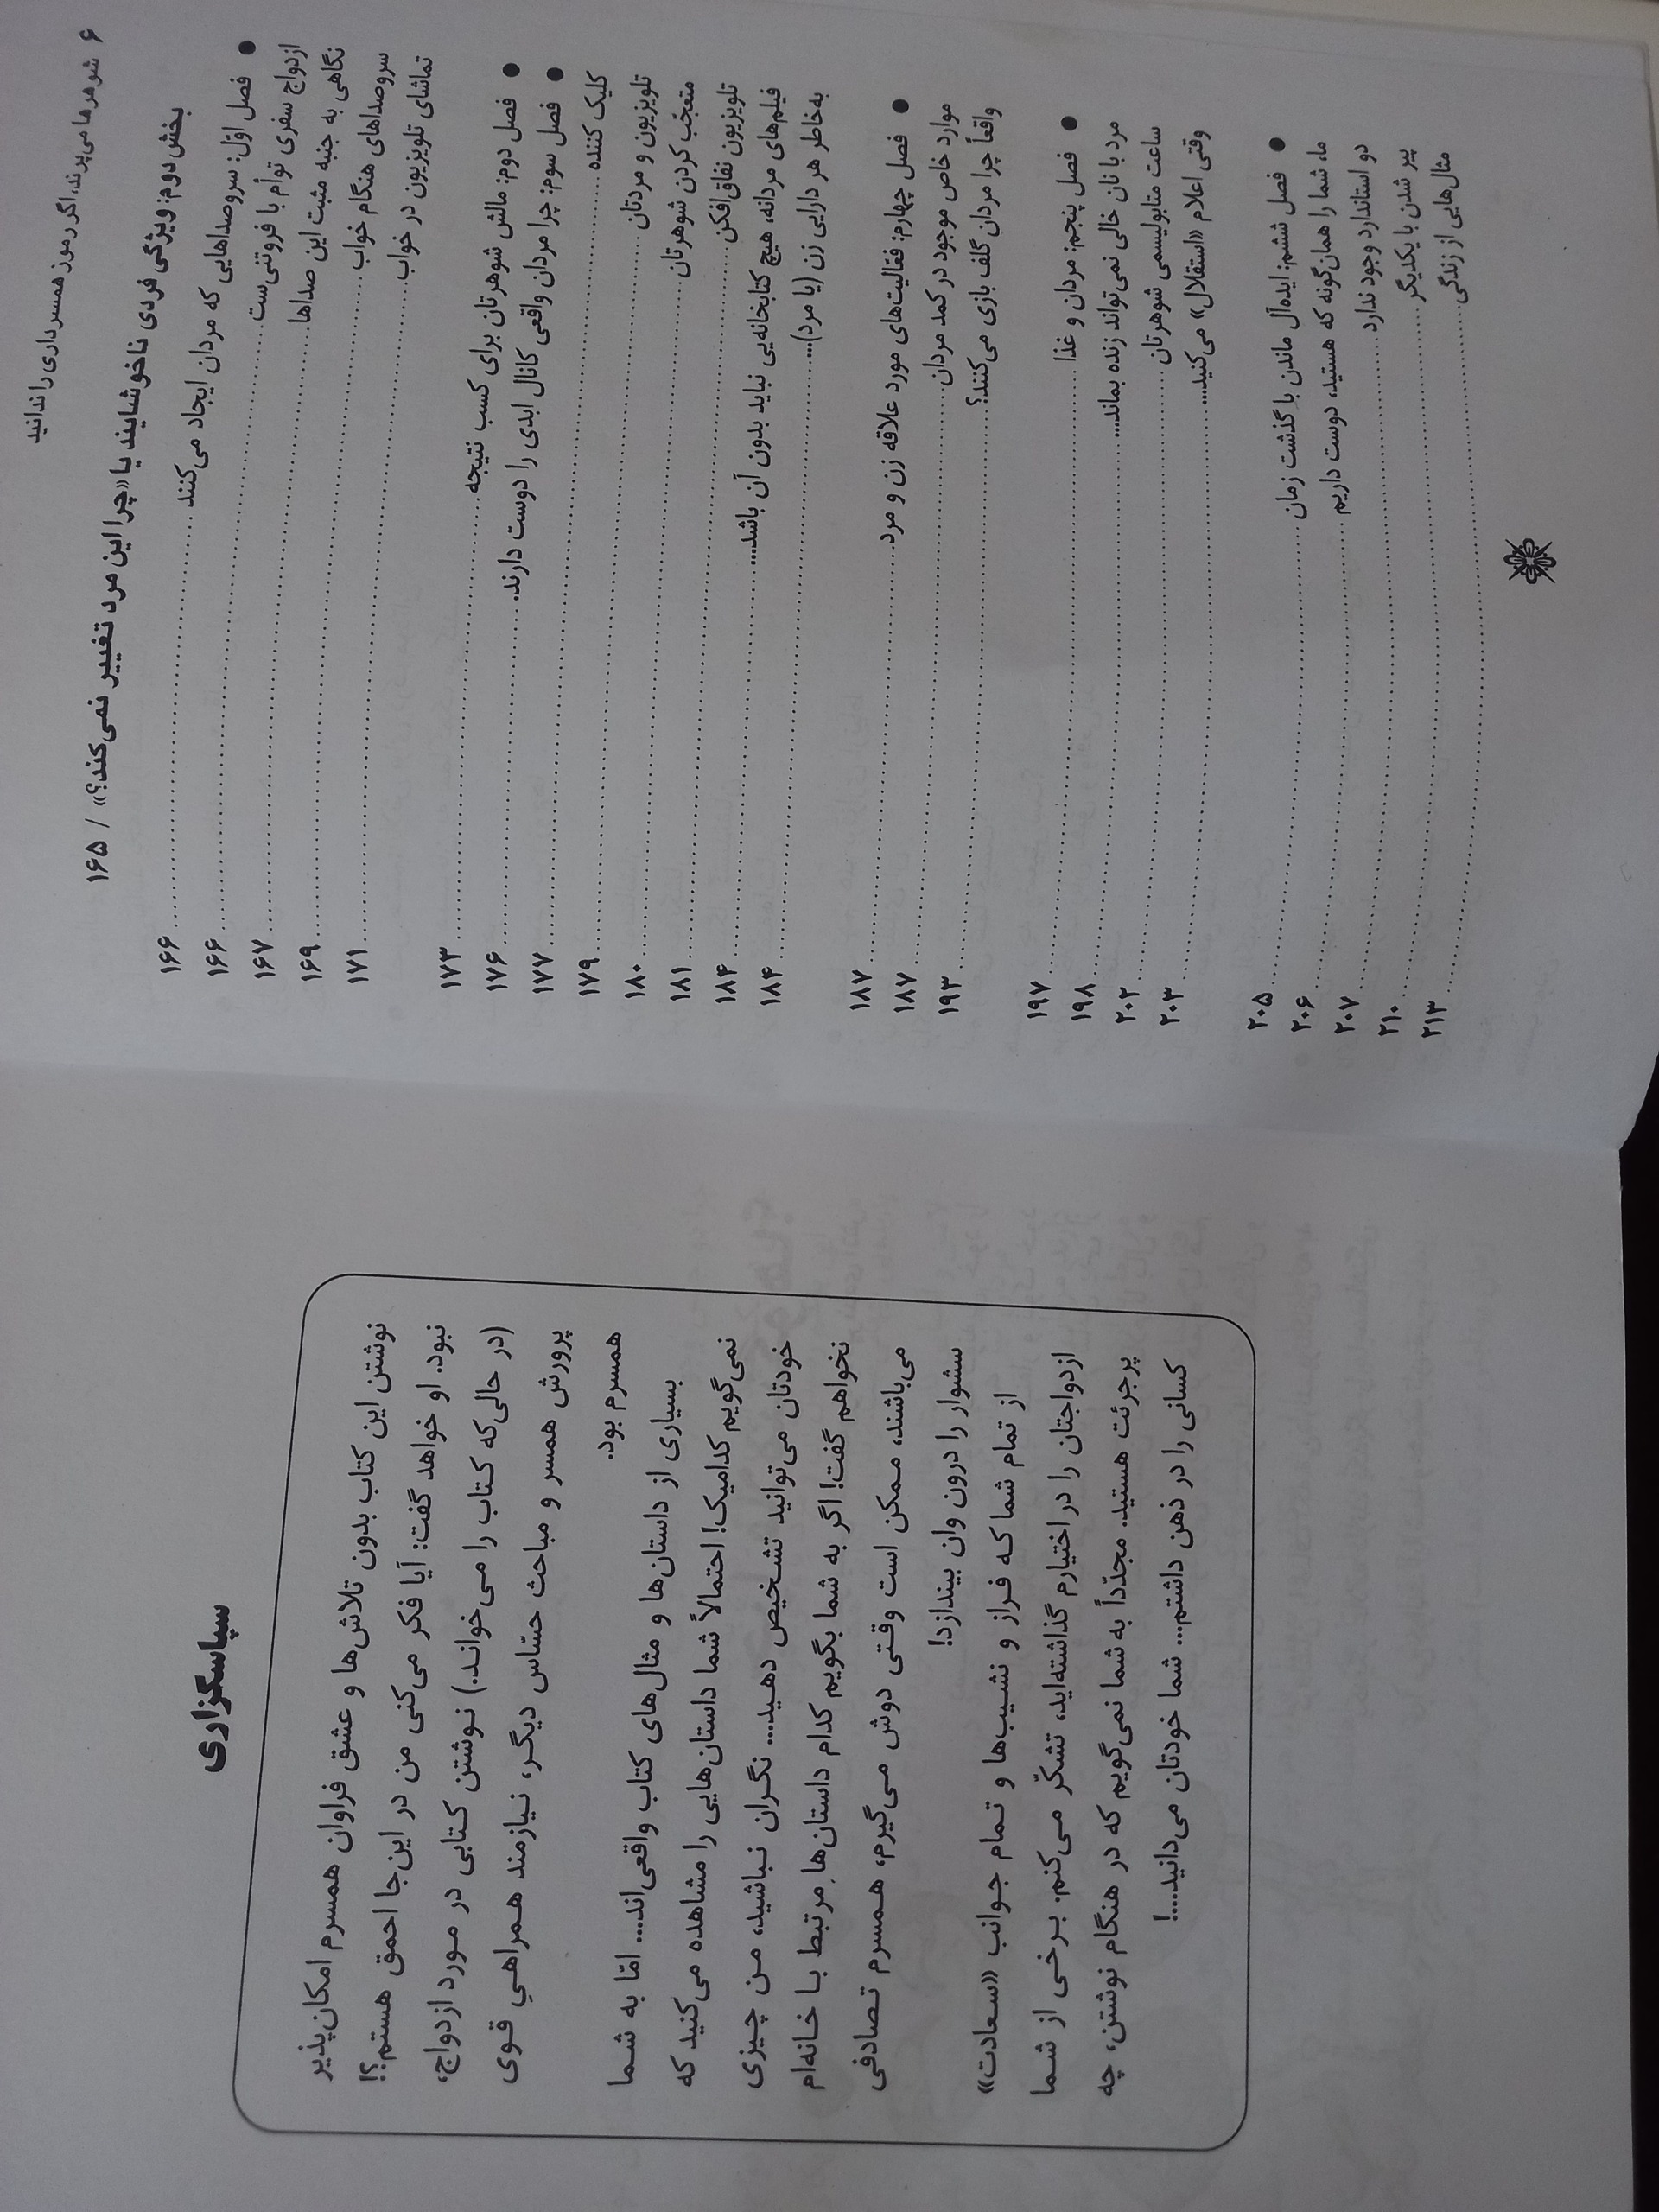 ۶ شوهرها می‌پرند، اگر رموز همسرداری را ندانید
بخش دوم: ویژگی فردی ناخوشایند یا «چرا این مرد تغییر نمی‌کند؟» / ۱۶۵
● فصل اوّل: سروصداهایی که مردان ایجاد می‌کنند ........ ۱۶۶
ازدواج سفری توأم با فروتنی‌ست ........ ۱۶۶
نگاهی به جنبه مثبت این صداها ........ ۱۶۷
سروصداهای هنگام خواب ........ ۱۶۹
تماشای تلویزیون در خواب ........ ۱۷۱
● فصل دوم: مالش شوهرتان برای کسب نتیجه ........ ۱۷۳
● فصل سوم: چرا مردان واقعی کانال ابدی را دوست دارند ........ ۱۷۶
کلیک کننده ........ ۱۷۷
تلویزیون و مردتان ........ ۱۷۹
متعجّب کردن شوهرتان ........ ۱۸۰
تلویزیون نفاق‌افکن ........ ۱۸۱
فیلم‌های مردانه، هیچ کتابخانه‌یی نباید بدون آن باشد... ........ ۱۸۴
به‌خاطر هر دارایی زن (یا مرد)... ........ ۱۸۴
● فصل چهارم: فعّالیت‌های مورد علاقه زن و مرد ........ ۱۸۷
موارد خاص موجود در کمد مردان ........ ۱۸۷
واقعاً چرا مردان گلف بازی می‌کنند؟ ........ ۱۹۳
● فصل پنجم: مردان و غذا ........ ۱۹۷
مرد با نان خالی نمی‌تواند زنده بماند... ........ ۱۹۸
ساعت متابولیسمی شوهرتان ........ ۲۰۲
وقتی اعلام «استقلال» می‌کنید... ........ ۲۰۳
● فصل ششم: ایده‌آل ماندن با گذشت زمان ........ ۲۰۵
ما، شما را همان‌گونه که هستید، دوست داریم ........ ۲۰۶
دو استاندارد وجود ندارد ........ ۲۰۷
پیر شدن با یکدیگر ........ ۲۱۰
مثال‌هایی از زندگی ........ ۲۱۳
سپاسگزاری
نوشتن این کتاب بدون تلاش‌ها و عشق فراوان همسرم امکان‌پذیر
نبود. او خواهد گفت: آیا فکر می‌کنی من در این‌جا احمق هستم؟!
(در حالی‌که کتاب را می‌خواند.) نوشتن کتابی در مورد ازدواج،
پرورش همسر و مباحث حسّاس دیگر، نیازمند همراهیِ قوی
همسرم بود.
بسیاری از داستان‌ها و مثال‌های کتاب واقعی‌اند... امّا به شما
نمی‌گویم کدامیک! احتمالاً شما داستان‌هایی را مشاهده می‌کنید که
خودتان می‌توانید تشخیص دهید... نگران نباشید، من چیزی
نخواهم گفت! اگر به شما بگویم کدام داستان‌ها مرتبط با خانه‌ام
می‌باشند، ممکن است وقتی دوش می‌گیرم، همسرم تصادفی
سشوار را درون وان بیندازد!
از تمام شما که فراز و نشیب‌ها و تمام جوانب «سعادت»
ازدواجتان را در اختیارم گذاشته‌اید، تشکّر می‌کنم. برخی از شما
پرجرئت هستید. مجدّداً به شما نمی‌گویم که در هنگام نوشتن، چه
کسانی را در ذهن داشتم... شما خودتان می‌دانید...!